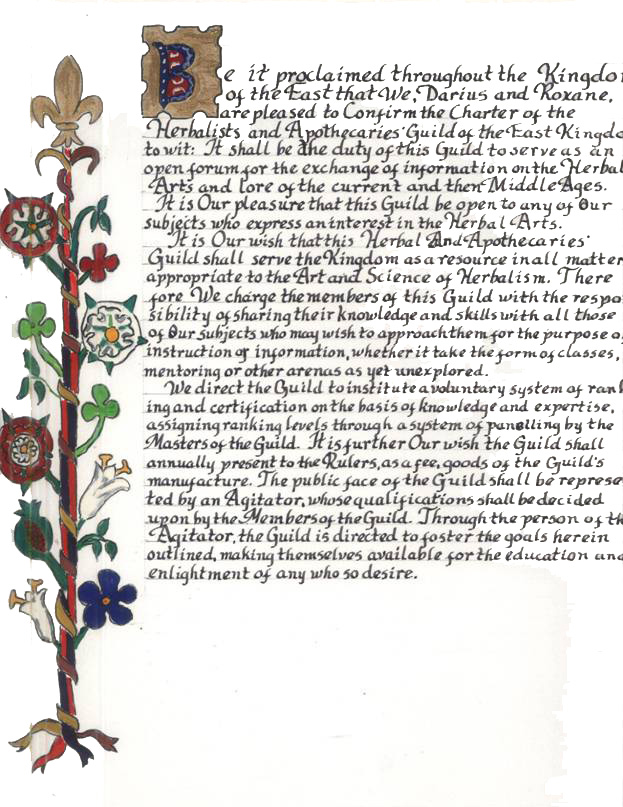 Be it proclaimed throughout the Kingdo
of the East that We, Darius and Roxane,
are pleased to Confirm the Charter of the
Herbalists and Apothecaries' Guild of the East Kingdo
to wit: It shall be the duty of this Guild to serve as an
open forum for the exchange of information on the Herbal
Arts and lore of the current and then Middle Ages.
It is Our pleasure that this Guild be open to any of Our
subjects who express an interest in the Herbal Arts.
It is Our wish that this Herbal And Apothecaries'
Guild shall serve the Kingdom as a resource in all matter
appropriate to the Art and Science of Herbalism. There
fore We charge the members of this Guild with the respo
sibility of sharing their knowledge and skills with all those
of Our Subjects who may wish to approach them for the purpose o
instruction or information, whether it take the form of classes,
mentoring or other arenas as yet unexplored.
We direct the Guild to institute a voluntary system of rank
ing and certification on the basis of knowledge and expertise,
assigning ranking levels through a system of panelling by the
Masters of the Guild. It is further Our wish the Guild shall
annually present to the Rulers, as a fee, goods of the Guild's
manufacture. The public face of the Guild shall be represe
ted by an Agitator, whose qualifications shall be decided
upon by the Members of the Guild. Through the person of th
Agitator, the Guild is directed to foster the goals herein
outlined, making themselves available for the education and
enlightment of any who so desire.